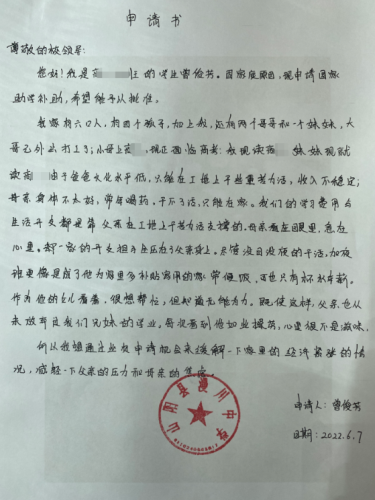 申请书
尊敬的校领导:
您好!我是高 班的学生曾俊芳。因家庭原因,现申请国家
助学补助,希望给予以批准。
我家有六口人,有四个孩子,加上我,还有两个哥哥和一个妹妹,大
哥已外出打工了;小哥上高 ,现正面临高考;我现读高 妹妹现就
读高 由于爸爸文化水平低,只能在工地上干些重苦力活,收入不稳定;
母亲身体不太好,常年喝药,干不了活,只能在家。我们的学习费用与
生活开支都是靠父亲在工地上干苦力活支撑的。母亲看在眼里,急在
心里。却一家的开支担子全压在了父亲身上。尽管没日没夜的干活,加夜
班更像是成了他为家里多补贴家用的家常便饭,可也只有杯水车薪。
作为他的女儿看着,很想帮忙,但却无能为力。即使这样,父亲也从
来没有弃我们兄妹的学业,每次看到他如此操劳,心里很不是滋味。
所以我想通过此次申请能够来缓解一下家里的经济紧张的情
况,减轻一下父亲的压力和母亲的焦虑。
申请人:曾俊芳
日期:2022.6.7